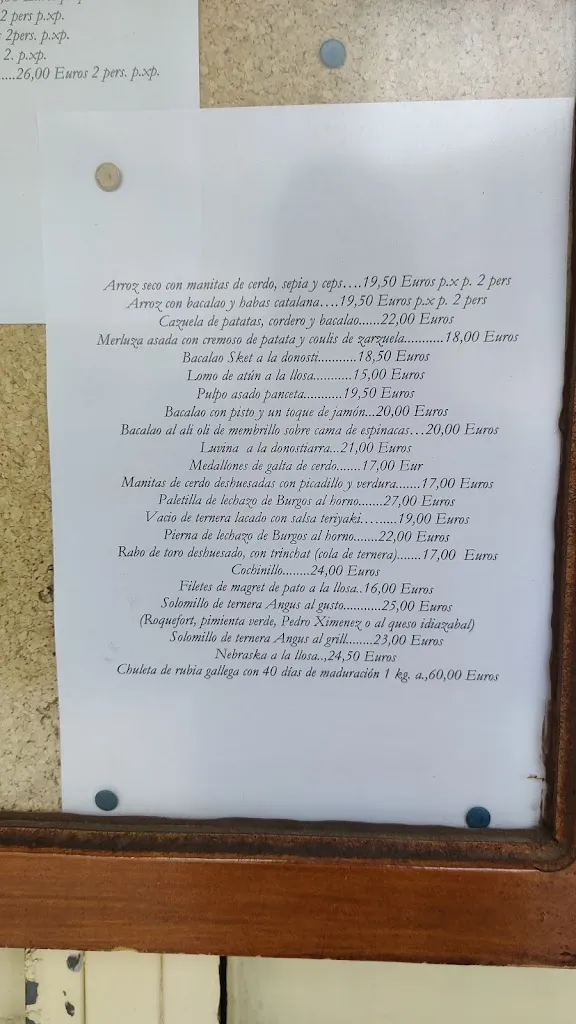 2 pers p.xp.
2pers. p.xp.
2. p.xp.
.....26,00 Euros 2 pers. p.xp.
Arroz seco con manitas de cerdo, sepia y ceps....19,50 Euros p.x p. 2 pers
Arroz con bacalao y habas catalana....19,50 Euros p.x p. 2 pers
Cazuela de patatas, cordero y bacalao......22,00 Euros
Merluza asada con cremoso de patata y coulis de zarzuela...........18,00 Euros
Bacalao Sket a la donosti..........18,50 Euros
Lomo de atún a la llosa...........15,00 Euros
Pulpo asado panceta..........19,50 Euros
Bacalao con pisto y un toque de jamón...20,00 Euros
Bacalao al ali oli de membrillo sobre cama de espinacas...20,00 Euros
Luvina a la donostiarra...21,00 Euros
Medallones de galta de cerdo.......17,00 Eur
Manitas de cerdo deshuesadas con picadillo y verdura.......17,00 Euros
Paletilla de lechazo de Burgos al horno.......27,00 Euros
Vacio de ternera lacado con salsa teriyaki.........19,00 Euros
Pierna de lechazo de Burgos al horno.......22,00 Euros
Rabo de toro deshuesado, con trinchat (cola de ternera).......17,00 Euros
Cochinillo........24,00 Euros
Filetes de magret de pato a la llosa..16,00 Euros
Solomillo de ternera Angus al gusto...........25,00 Euros
(Roquefort, pimienta verde, Pedro Ximenez o al queso idiazabal)
Solomillo de ternera Angus al grill........23,00 Euros
Nebraska a la llosa..,24,50 Euros
Chuleta de rubia gallega con 40 días de maduración 1 kg. a.,60,00 Euros